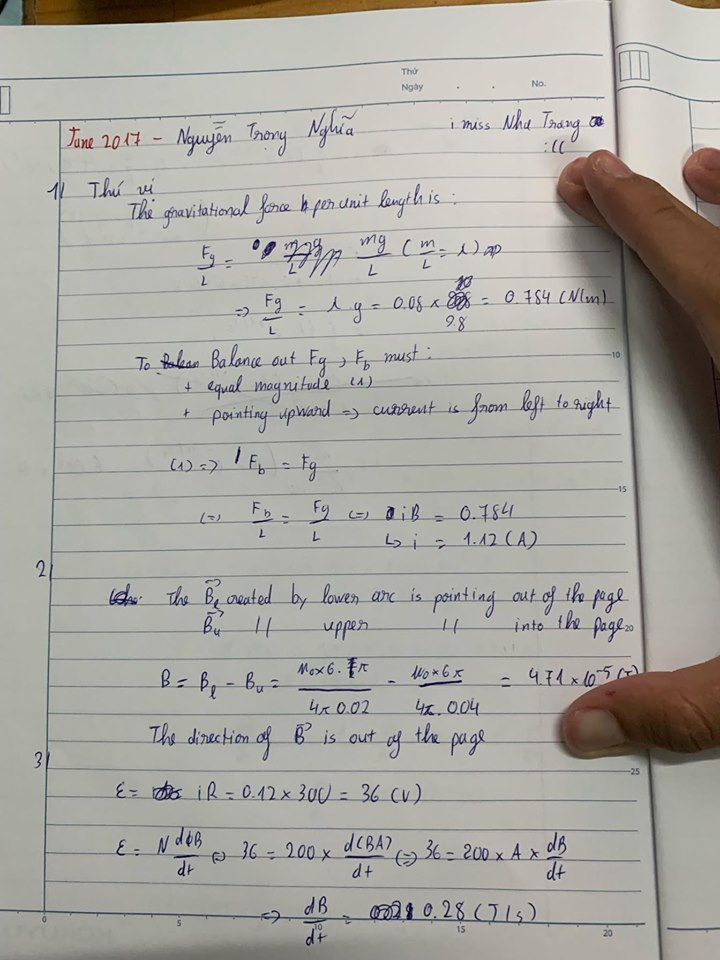 Thứ
Ngày . . No.
June 2017 - Nguyễn Trọng Nghĩa i miss Nha Trang
:((
1/ Thú vị
The gravitational force per unit length is :
Fg/L = mg/L (m/L = λ)
=> Fg/L = λ g = 0.08 × 9.8 = 0.784 (N/m)
10
To Balance out Fg, Fb must :
+ equal magnitude (1)
+ pointing upward => current is from left to right
(1) => Fb = Fg
15
(=) Fb/L = Fg/L (=) iB = 0.784
↳ i = 1.12 (A)
2/
The B⃗ℓ created by lower arc is pointing out of the page
B⃗u // upper // into the page
20
B = Bℓ - Bu = μ0×6.π/4π 0.02 - μ0×6π/4π. 0.04 = 4.71 × 10^-5
The direction of B⃗ is out of the page
3/
25
ε = iR = 0.12 × 300 = 36 (V)
ε = N dϕB/dt (=) 36 = 200 × d(BA)/dt (=) 36 = 200 × A × dB/dt
=> dB/dt = 0.28 (T/s)
0 5 10 15 20